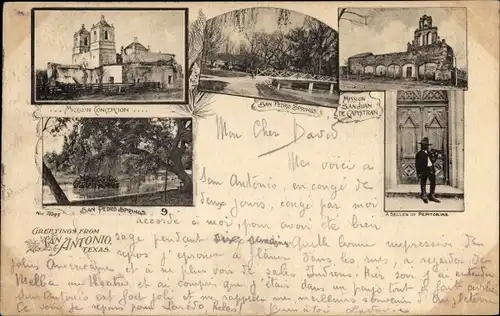 MISSION CONCEPCION
SAN PEDRO SPRINGS
MISSION
SAN JUAN
DE CAPISTRAN
SAN PEDRO SPRINGS
9
A SELLER OF
GREETINGS FROM
SAN
ANTONIO,
TEXAS.
Mon Cher David
Me voici à
San Antonio, en congé de
deux jours, congé par moi
accordé à moi, pour avoir été bien
sage pendant Quelle bonne impression de
repos j'éprouve à flâner dans les rues, à regarder de
jolies Américaines et à ne plus voir de sales Indiens. Hier soir j'ai entendu
Melba au théâtre et ai compris que j'étais dans un pays tout à fait civilisé
San Antonio est fort joli et me rappelle mes meilleurs souvenirs d'Angleterre
Ce soir je repars pour Laredo hélas! Bien à toi